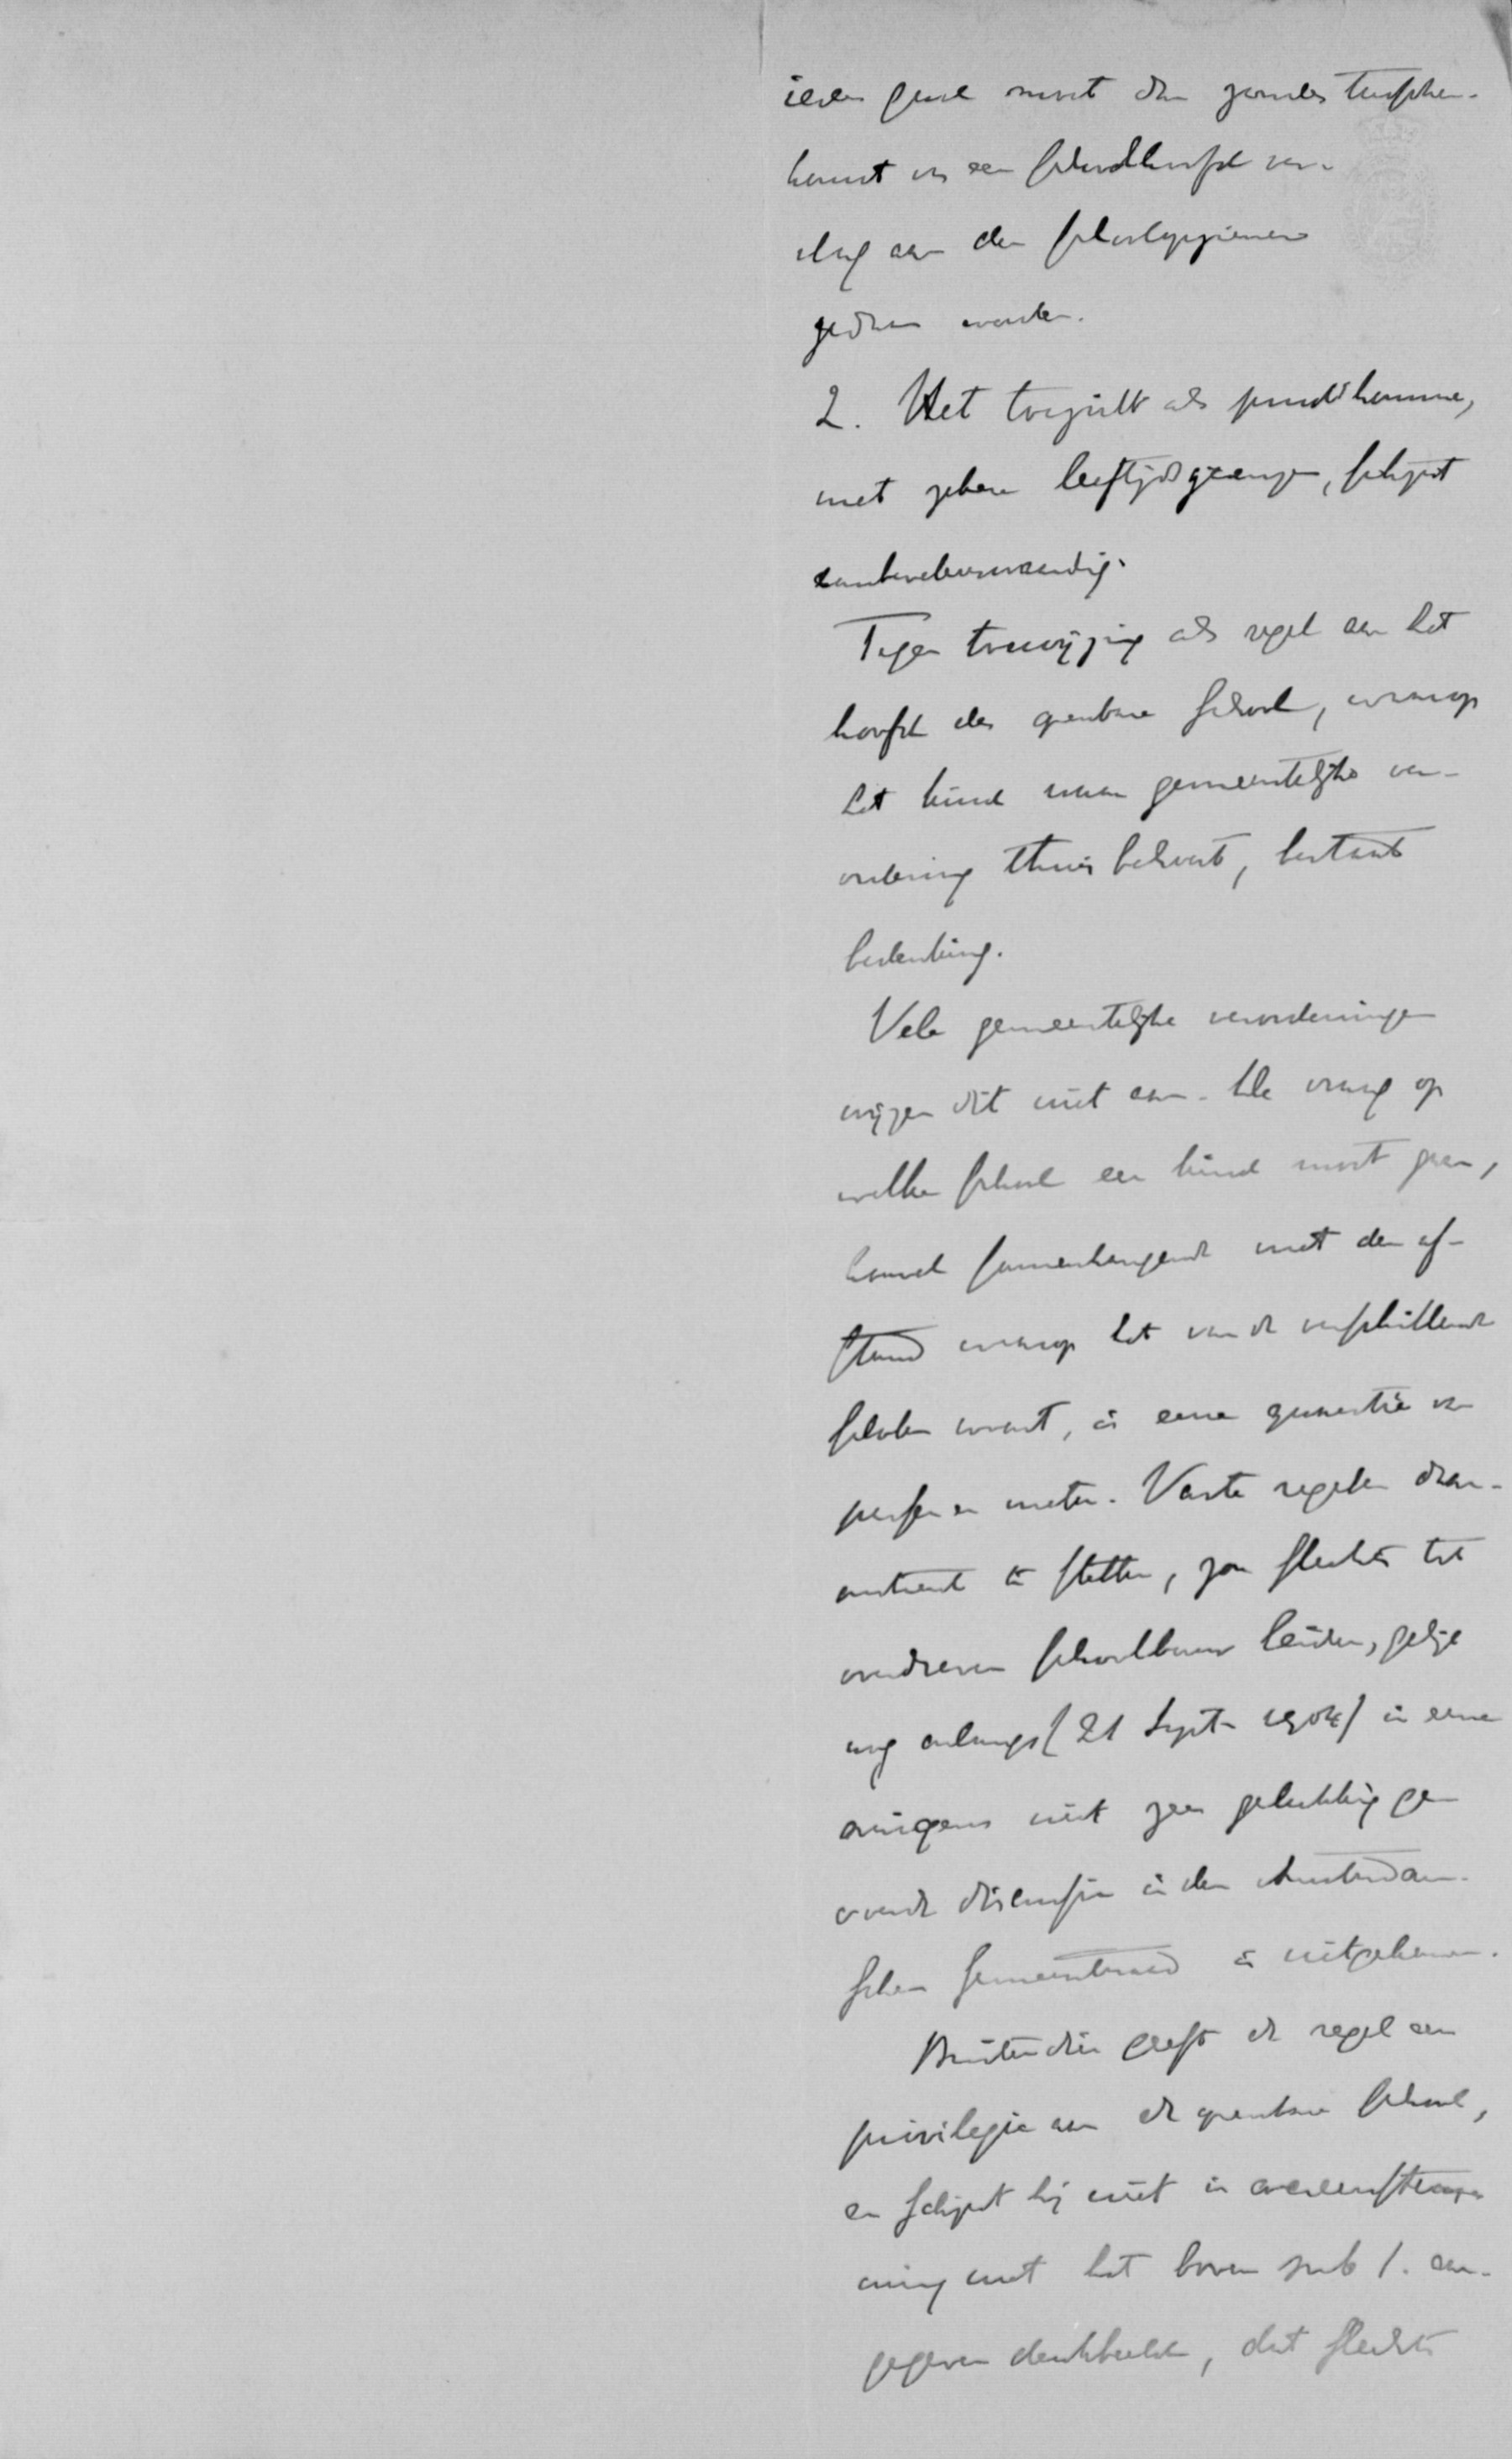 ieder geval moet dan zonder tusschen-
komst van een schoolhoofd ver-
slag aan den schoolopziener
gedaan worden.
2. Het toezicht als
met zekere leeftijdsgrenzen, schijnt
aanbevelenswaardig.
Tegen toewijzing als regel aan het
hoofd der openbare school, waarop
het kind naar gemeentelijke ver-
ordening thuis behoort, bestaat
bedenking.
Vele gemeentelijke verordeningen
wijzen dit niet aan. De vraag op
welke school een kind moet gaan,
samenhangende met den af-
stand waarop het van de verschillende
scholen woont, is eene quaestie van
passen en meten. Vaste regelen daar-
omtrent te stellen, zou slechts tot
overdreven leiden, gelijk
nog onlangs (21 Sept. 1904) in eene
overigens niet zeer gelukkig ge-
voerde discussie in den Amsterdam-
schen Gemeenteraad is uitgekomen.
Buitendien geeft de regel een
privilegie aan de openbare school,
en schijnt hij niet in overeenstem-
ming met het boven sub 1. aan-
gegeven denkbeeld, dat slechts